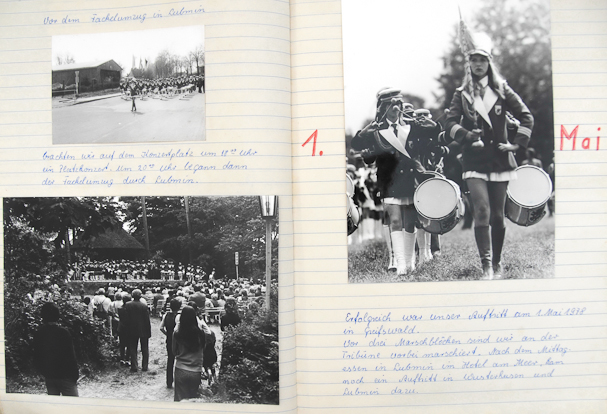 Vor dem Fackelumzug in Lubmin
brachten wir auf dem Konzertplatz um 18⁰⁰ Uhr
ein Platzkonzert. Um 20⁰⁰ Uhr begann dann
der Fackelumzug durch Lubmin.
1. Mai
Erfolgreich war unser Auftritt am 1. Mai
in Greifswald.
Vor drei Marschblöcken sind wir an der
Tribüne vorbei marschiert. Nach dem Mittag-
essen in Lubmin im Hotel am Meer, kam
noch ein Auftritt in Wusterhusen und
Lubmin dazu.